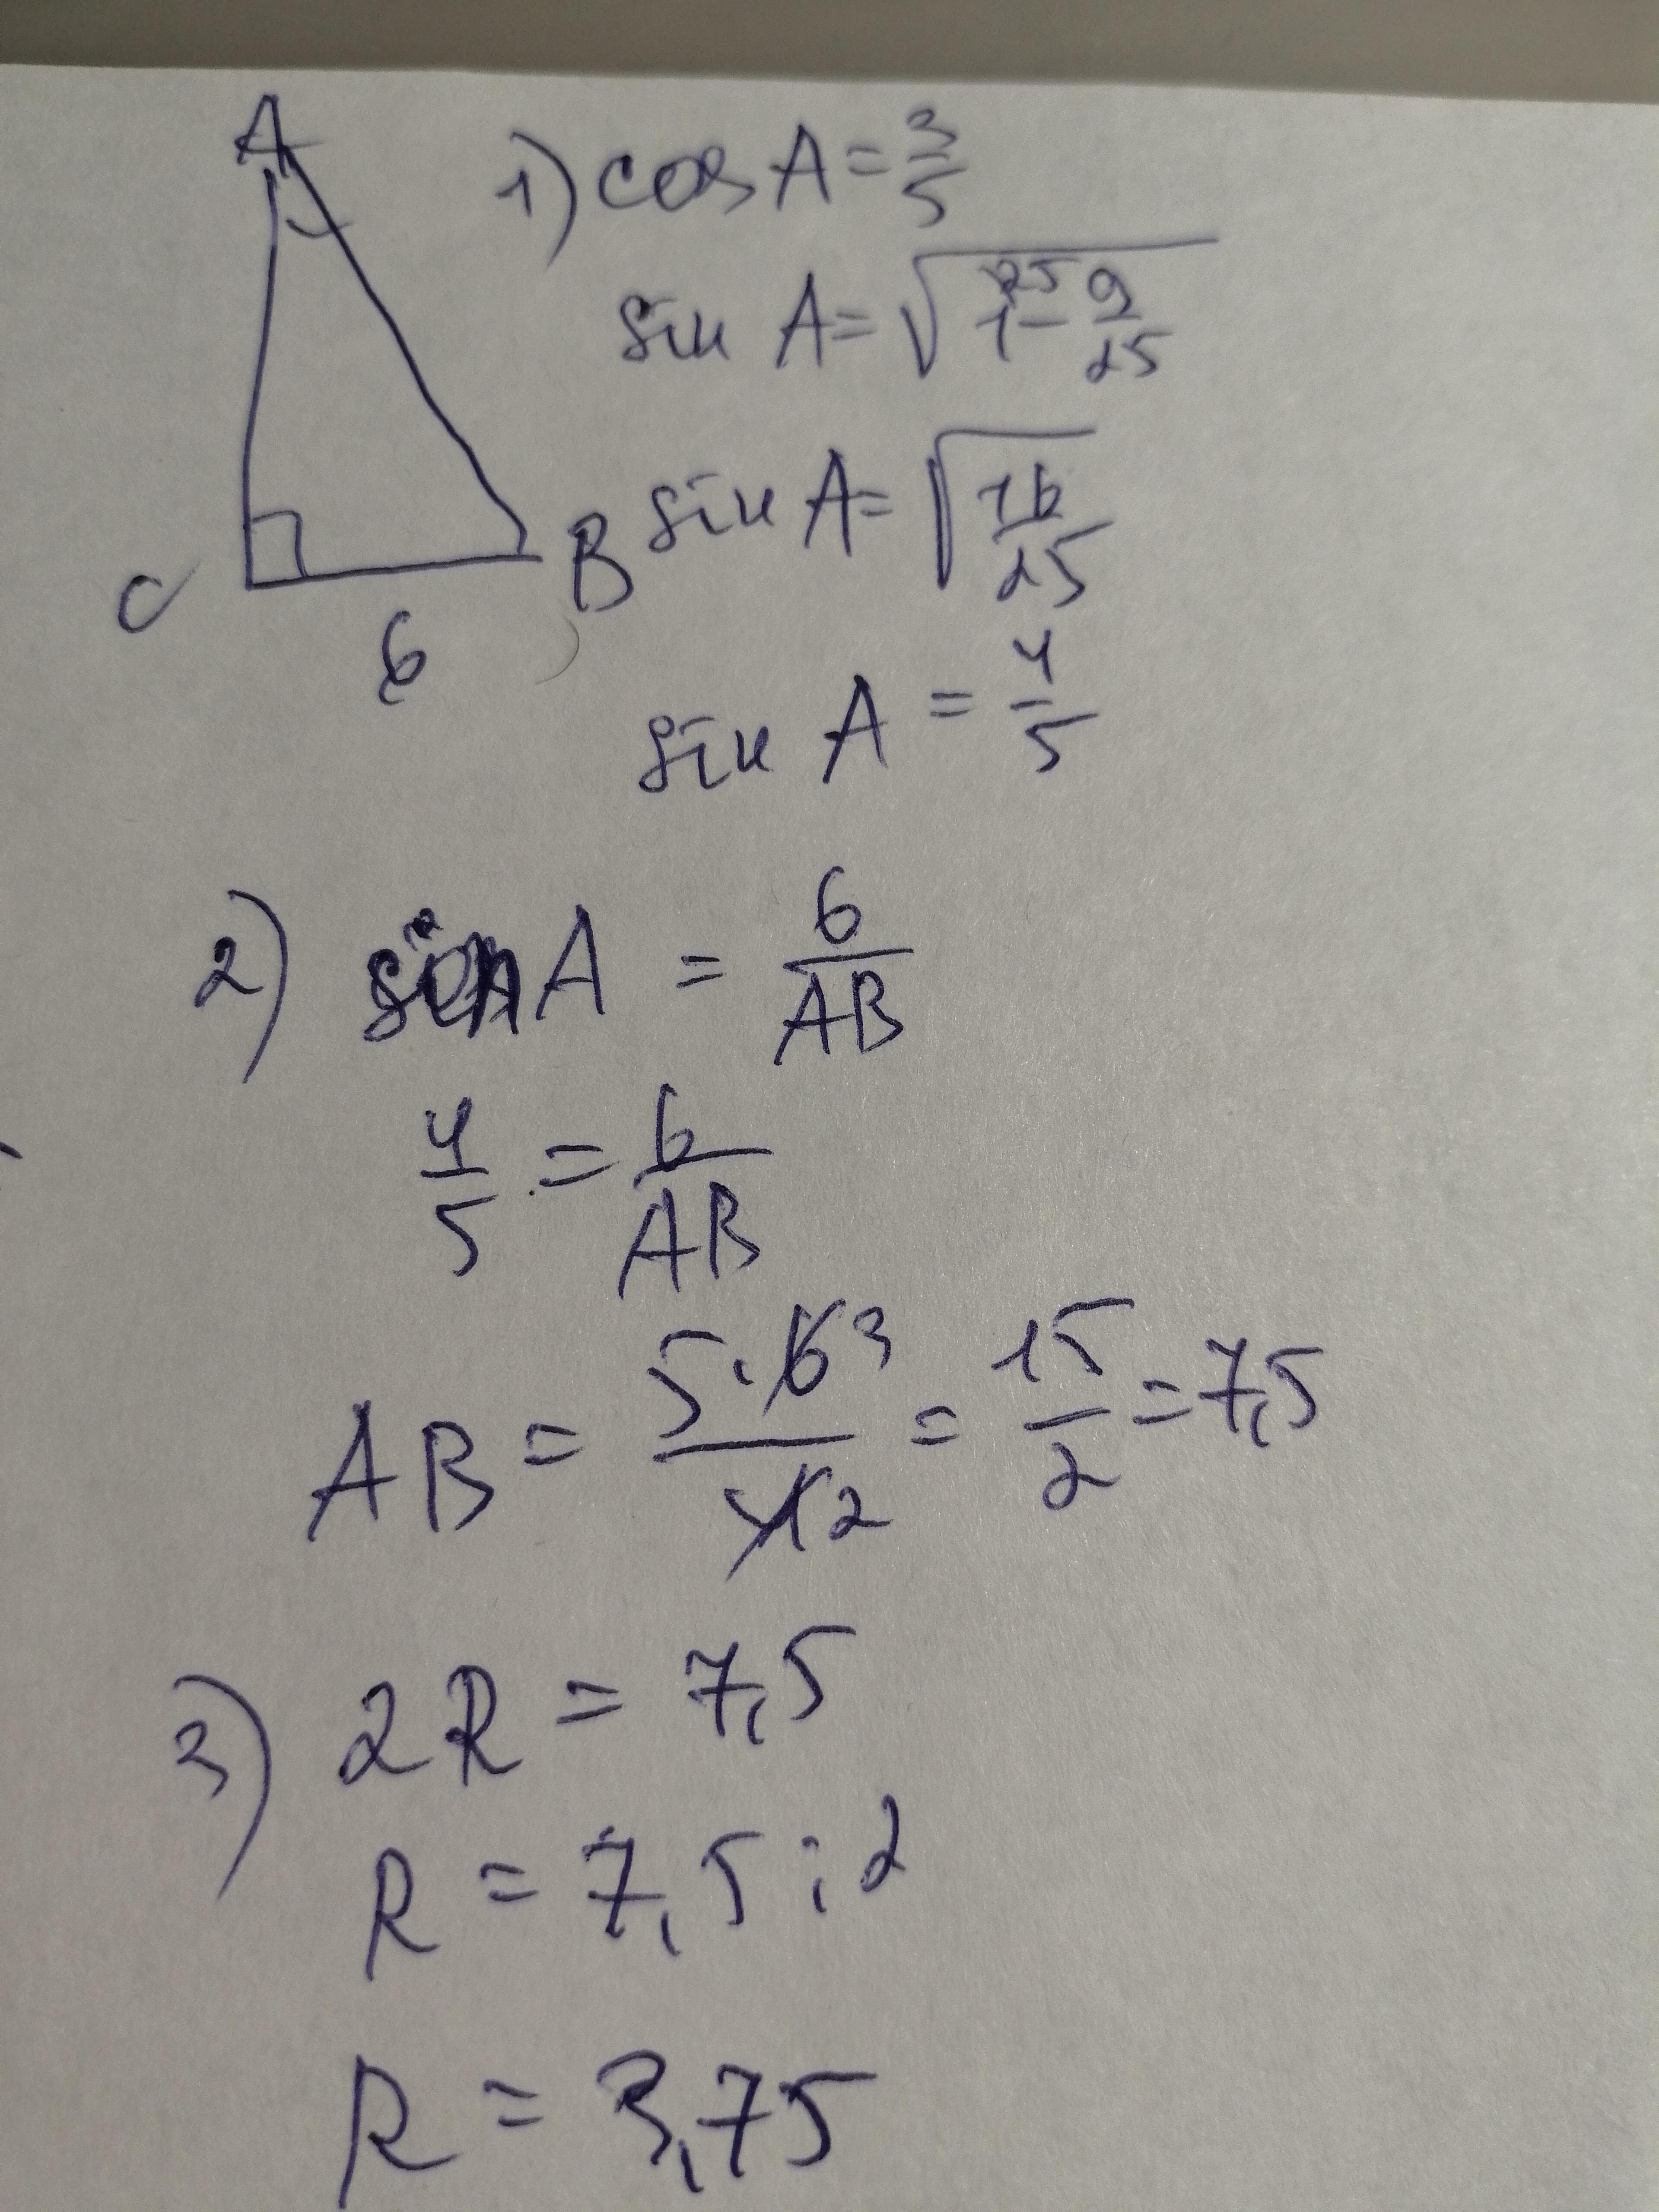 A
1) cos A = 3/5
sin A = √(1 25 - 9/25)
C
B
6
sin A = √(16/25)
sin A = 4/5
2) sin A = 6/AB
4/5 = 6/AB
AB = 5·6 3/4 2 = 15/2 = 7,5
3) 2R = 7,5
R = 7,5 : 2
R = 3,75